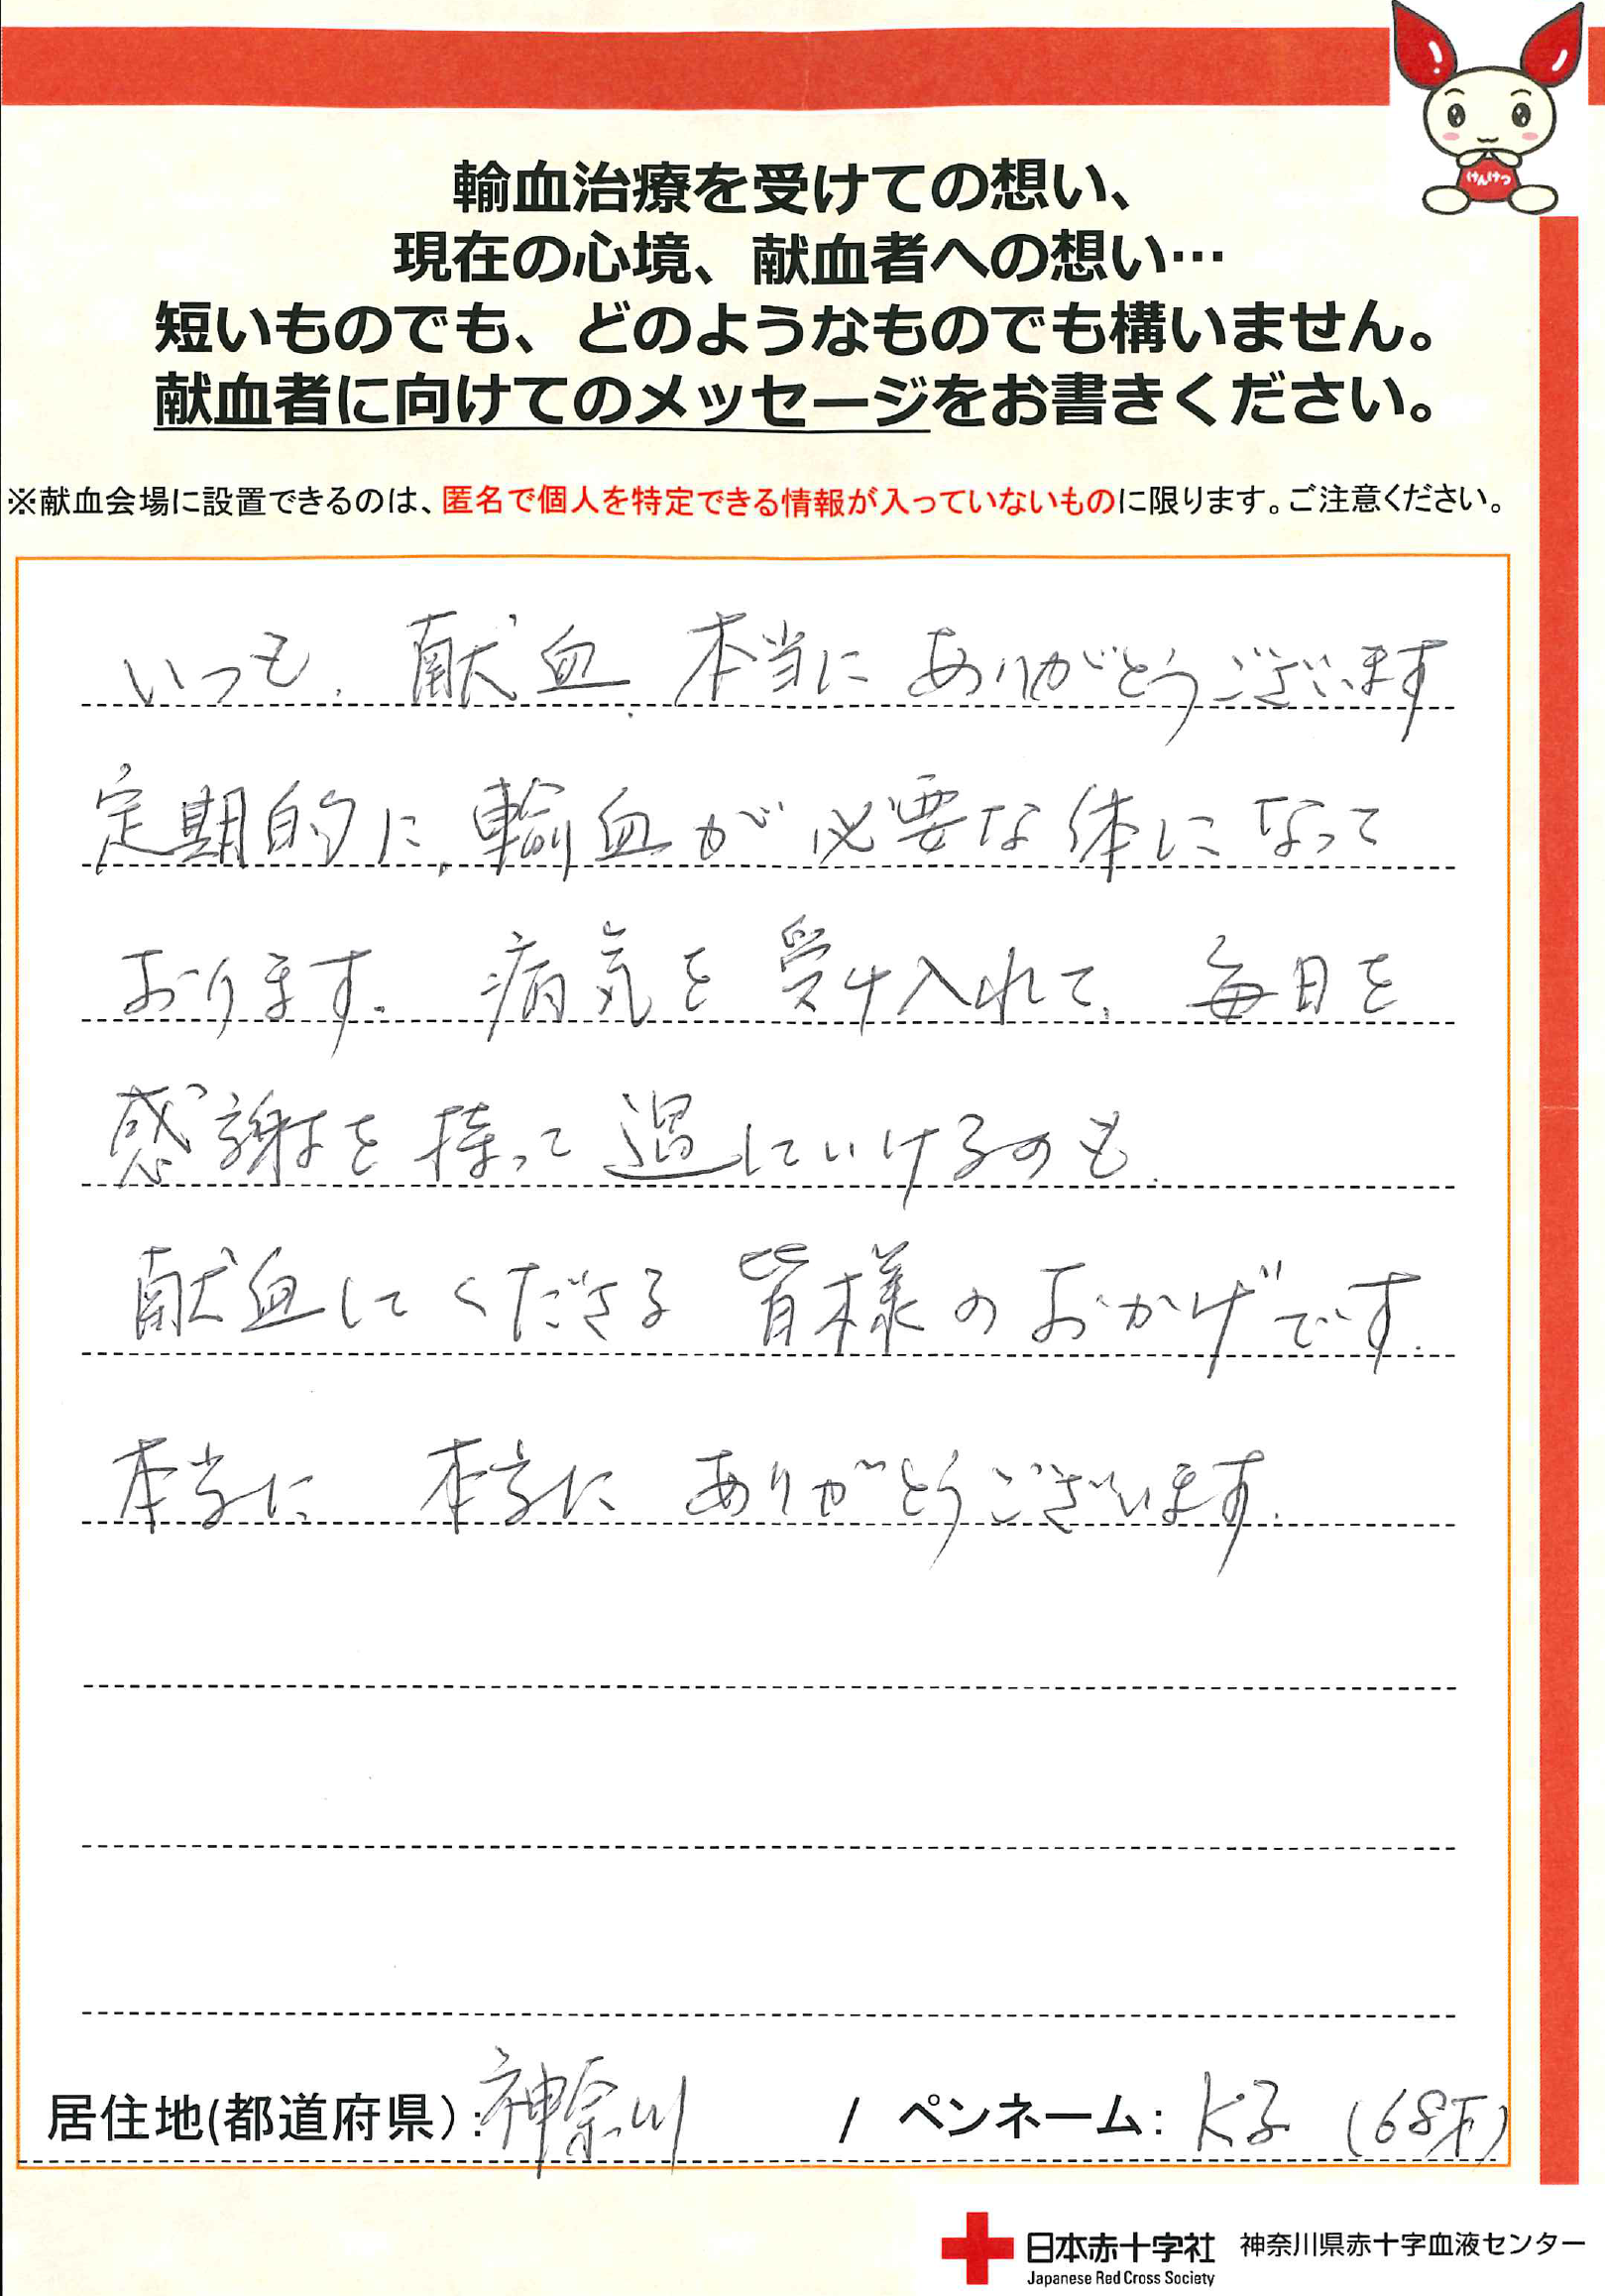 けんけつ
輸血治療を受けての想い、
現在の心境、献血者への想い…
短いものでも、どのようなものでも構いません。
献血者に向けてのメッセージをお書きください。
※献血会場に設置できるのは、匿名で個人を特定できる情報が入っていないものに限ります。ご注意ください。
いつも、献血、本当にありがとうございます
定期的に、輸血が必要な体になって
おります。病気を受け入れて、毎日を
感謝を持って過していけるのも、
献血してくださる皆様のおかげです。
本当に、本当にありがとうございます。
居住地(都道府県):神奈川 / ペンネーム: K子 (68才)
日本赤十字社 神奈川県赤十字血液センター
Japanese Red Cross Society